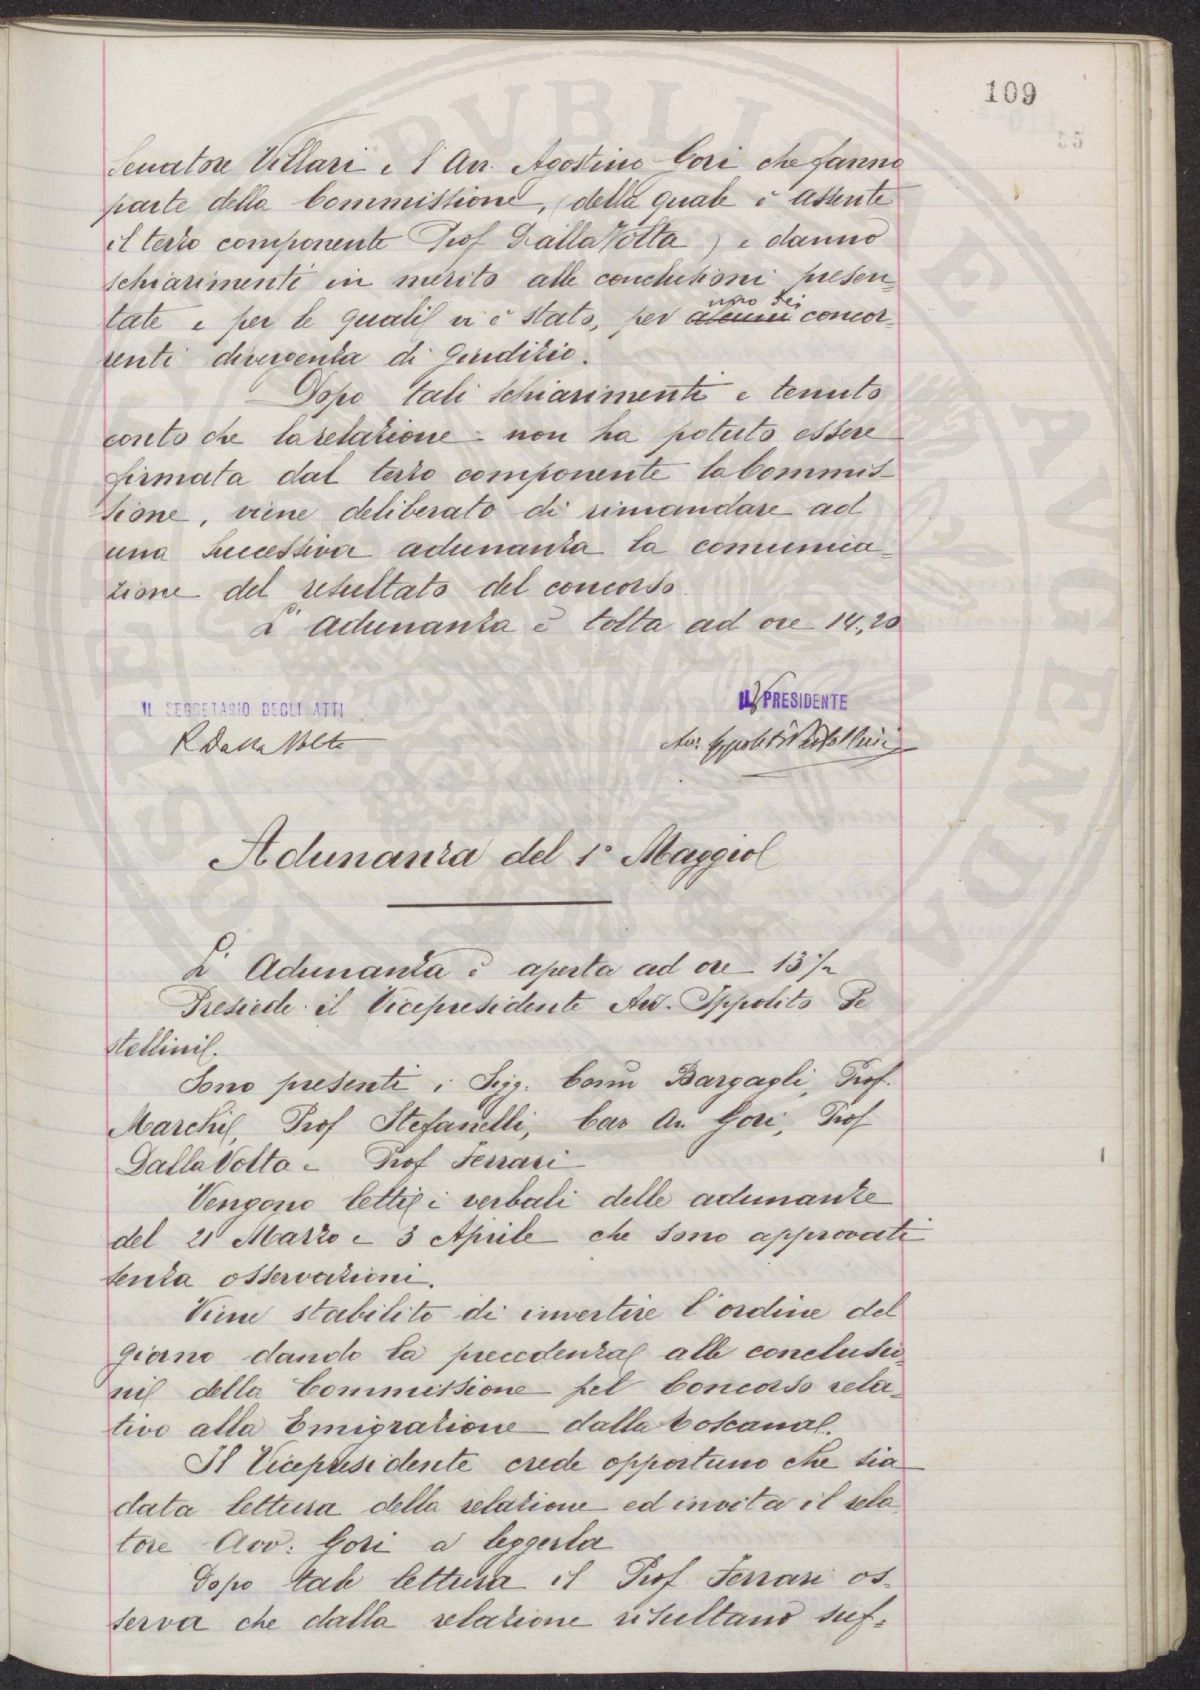 109
55
Senatore Villari e l'Avv. Agostino Gori che fanno
parte della Commissione, (della quale è assente
il terzo componente Prof Dalla Volta) e danno
schiarimenti in merito alle conclusioni presen=
tate e per le quali vi è stato, per alcuni uno dei concor=
renti divergenza di giudizio.
Dopo tali schiarimenti e tenuto
conto che la relazione non ha potuto essere
firmata dal terzo componente la Commis=
sione, viene deliberato di rimandare ad
una successiva adunanza la comunica=
zione del resultato del concorso.
L'adunanza è tolta ad ore 14,20
IL SEGRETARIO DEGLI ATTI
IL V PRESIDENTE
R Dalla Volta
Avv. Ippolito Pestellini
Adunanza del 1° Maggio
L'Adunanza è aperta ad ore 13 1/2
Presiede il Vicepresidente Avv. Ippolito Pe
stellini.
Sono presenti i Sigg. Comm Bargagli, Prof.
Marchi, Prof Stefanelli, Cav Avv Gori, Prof
Dalla Volta e Prof Ferrari
Vengono letti i verbali delle adunanze
del 21 Marzo e 3 Aprile che sono approvati
senza osservazioni.
Viene stabilito di invertire l'ordine del
giorno dando la precedenza alle conclusio=
ni della Commissione pel Concorso rela=
tivo alla Emigrazione dalla Toscana.
Il Vicepresidente crede opportuno che sia
data lettura della relazione ed invita il rela
tore Avv: Gori a leggerla
Dopo tale lettura il Prof Ferrari os=
serva che dalla relazione risultano suf=